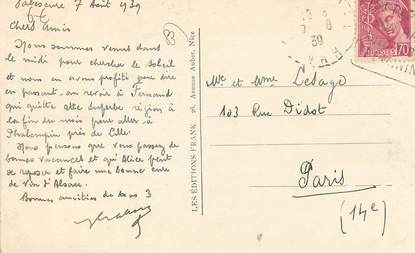 7 Août 1939
Chers Amis
Nous sommes venus dans
le midi pour chercher le soleil
et nous en avons profité pour dire
en passant au revoir à Fernand
qui quitte cette superbe région à
la fin du mois pour aller à
Phalempin près de Lille.
Nous pensons que vous passez de
bonnes vacances et qu'Alice peut
se reposer et faire une bonne cure
de Vin d'Alsace.
Bonnes amitiés de tous 3
83
LES ÉDITIONS FRANK 26, Avenue Auber, Nice
Mr et Mme Lesage
103 Rue Didot
Paris
(14e)
39
POSTES
70c